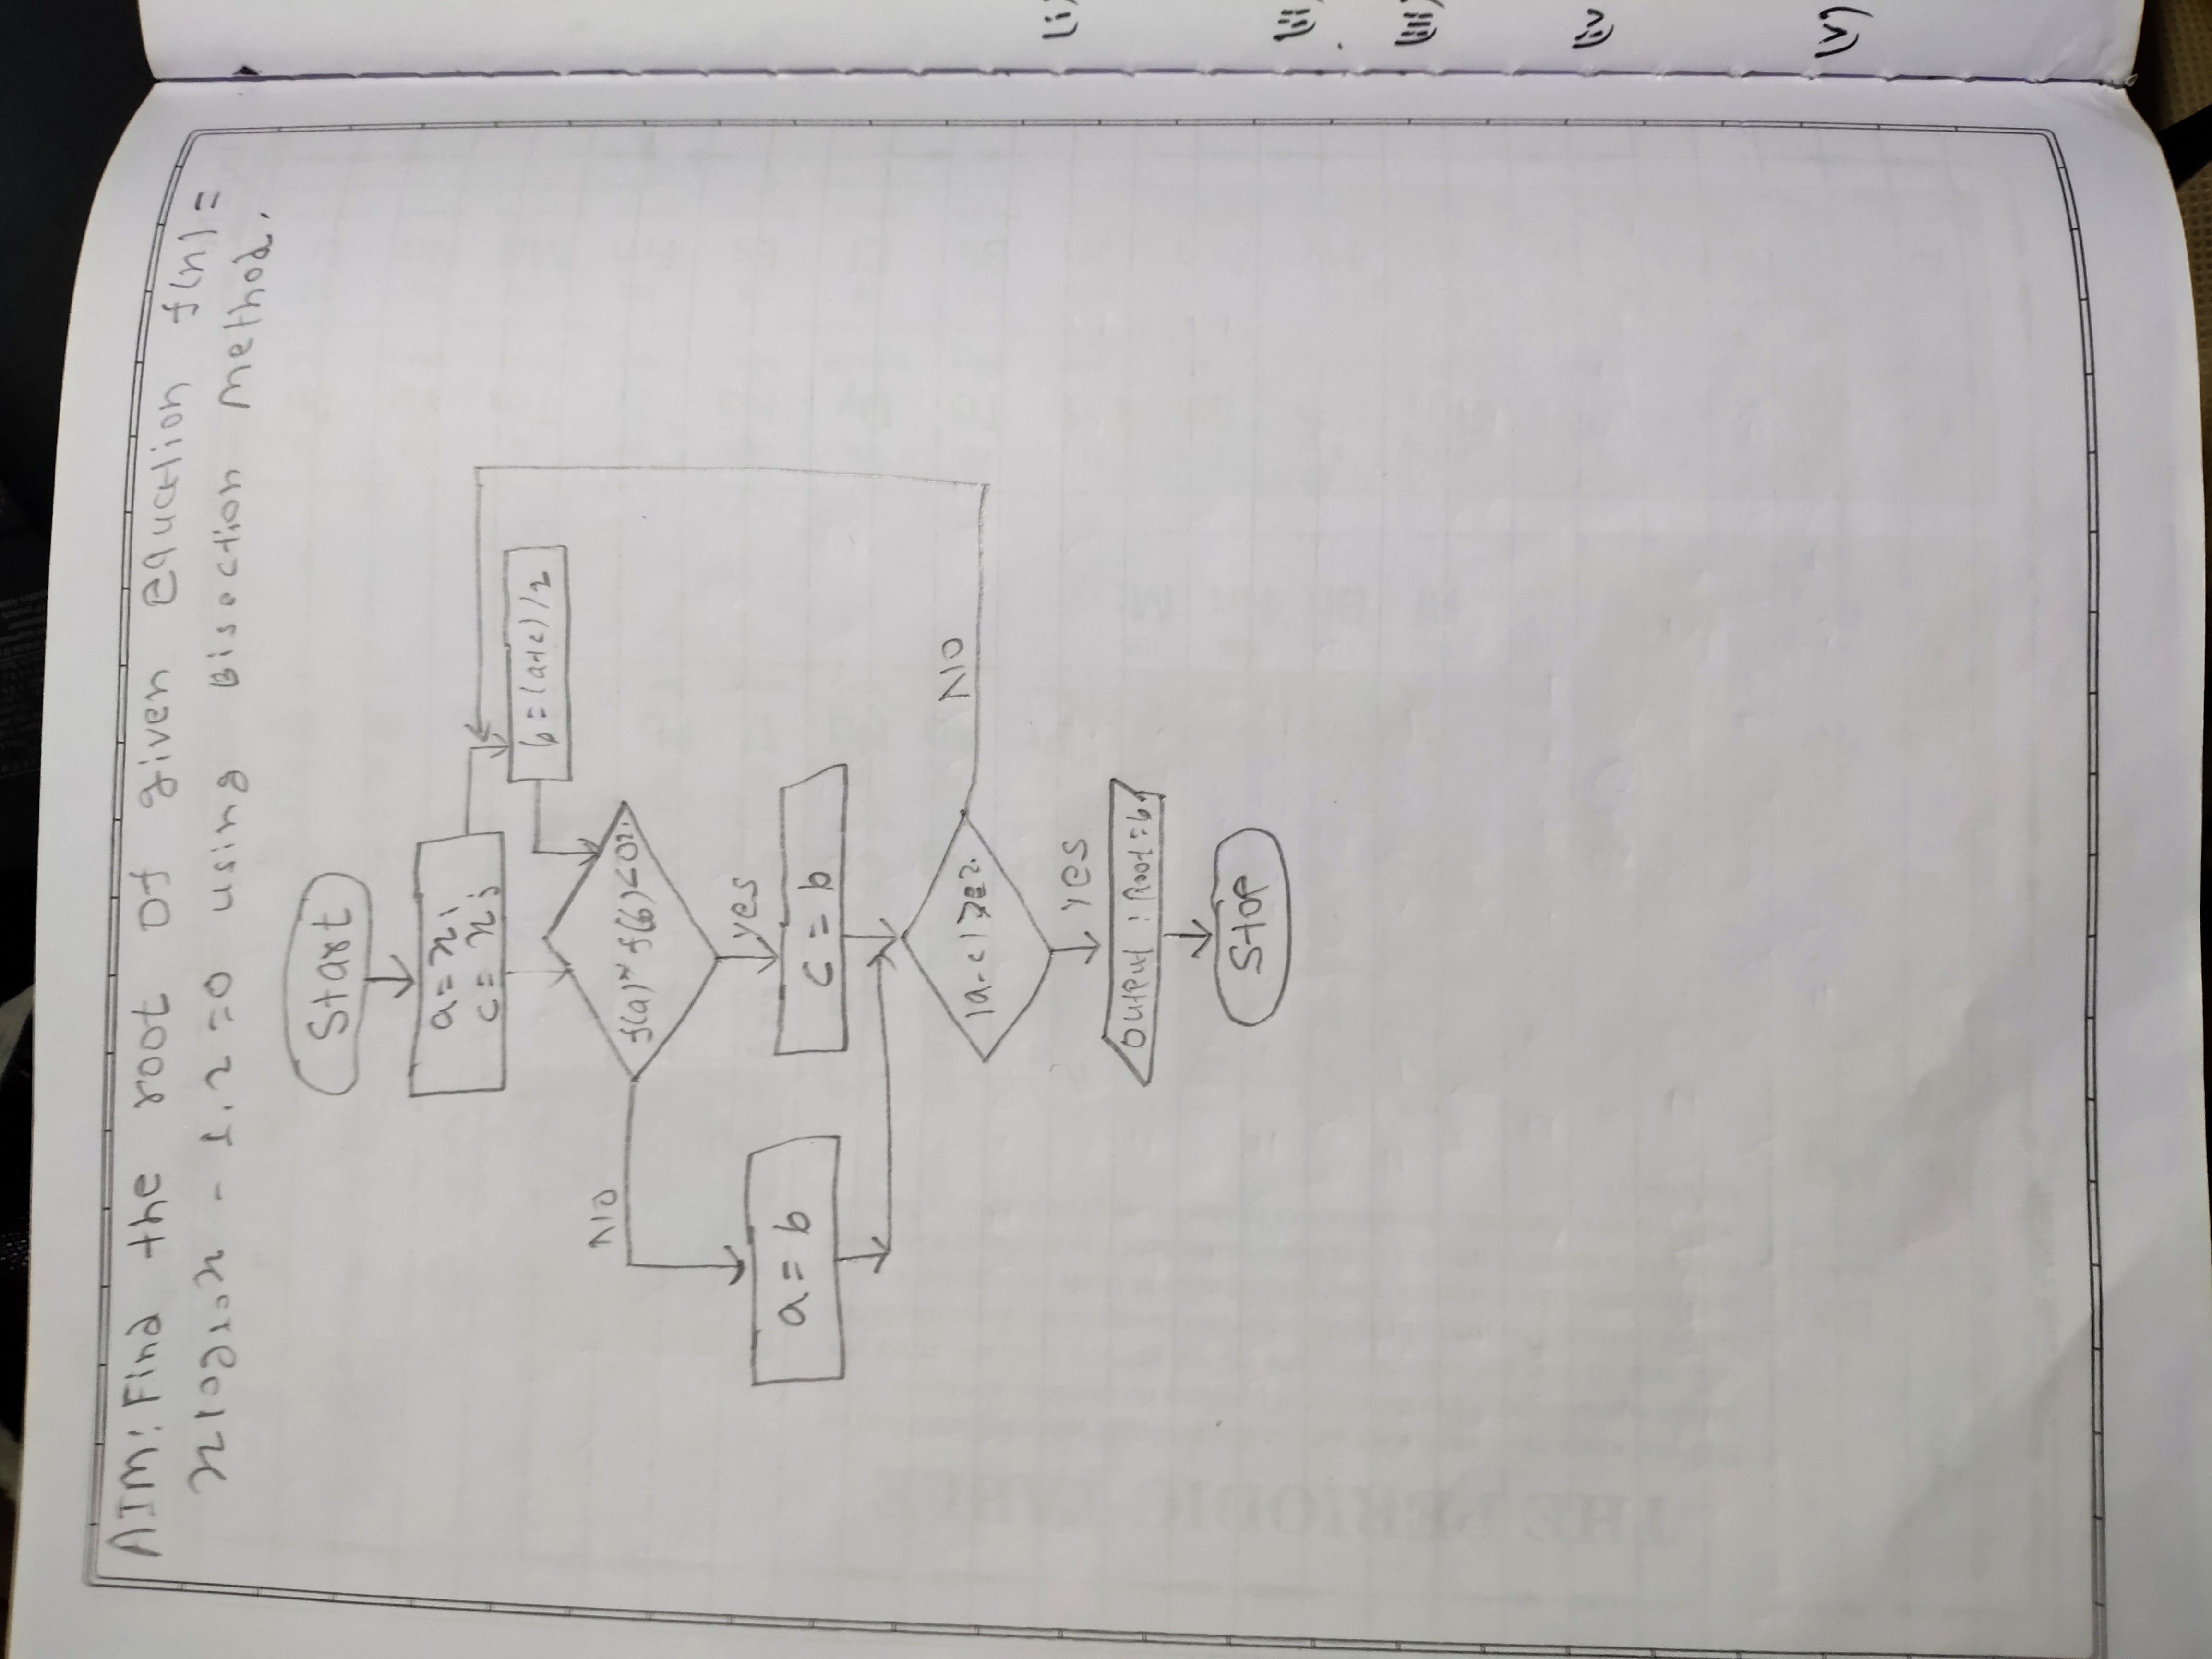 AIM: Find the root of given equation f(x) =
x log10 x - 1.2 = 0 using Bisection Method.
Start
a = xi
c = xj
b = (a+c)/2
f(a) * f(b) < 0?
NO
yes
a = b
c = b
NO
yes
Output : Root = b
Stop
(i)
(ii)
(iii)
(iv
(v)